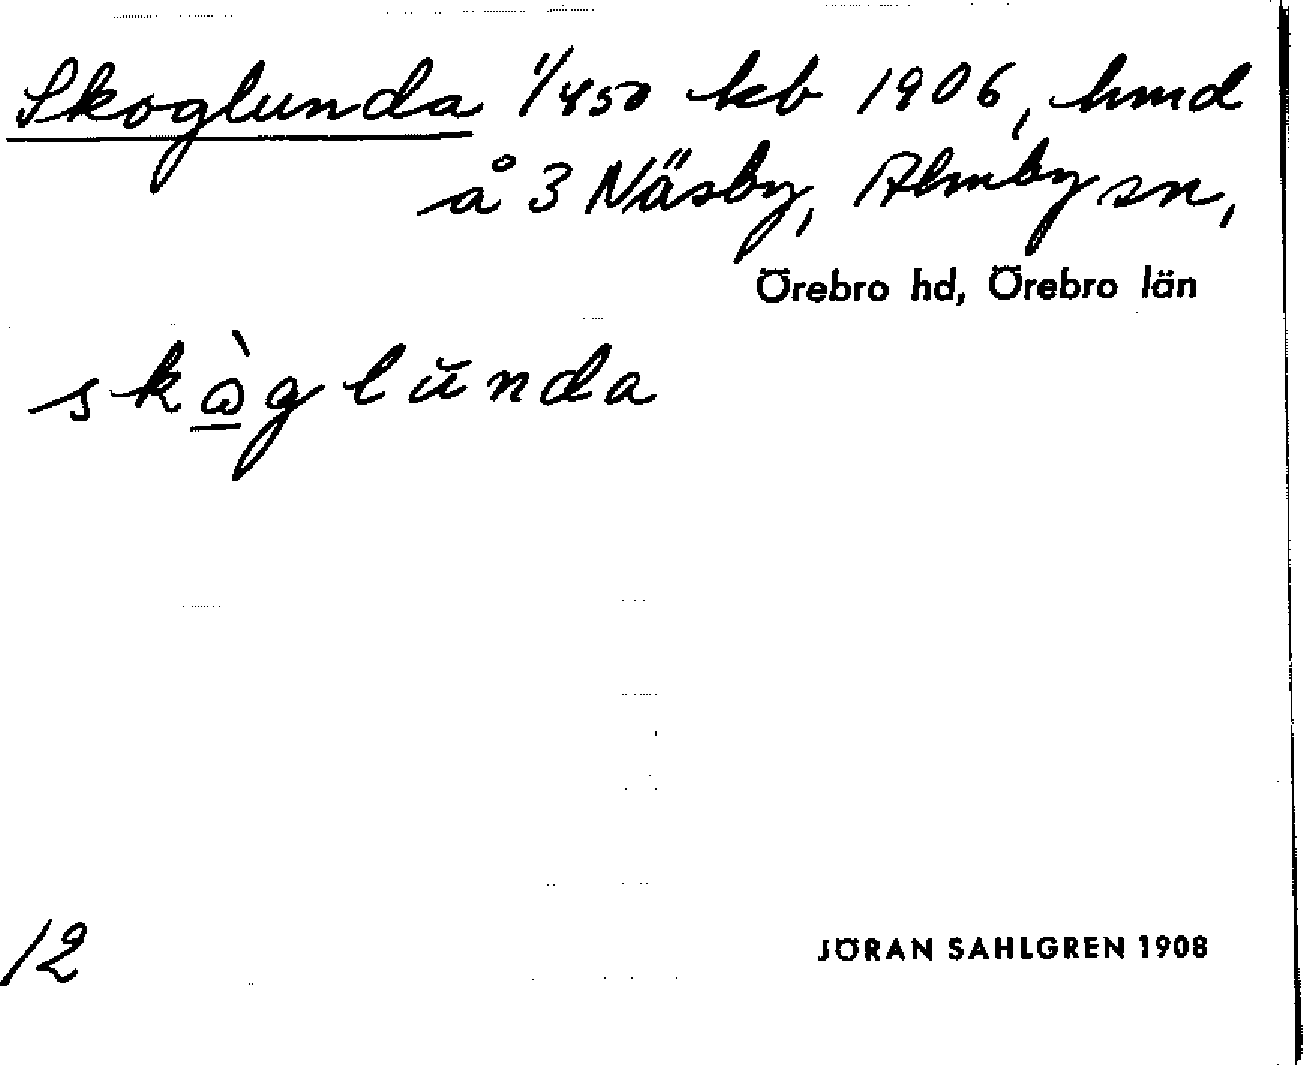 Skoglunda 1/450 kb 1906, hmd
å 3 Näsby, Almby sn,
Örebro hd, Örebro län
skὼ̲glŭnda
12
JÖRAN SAHLGREN 1908